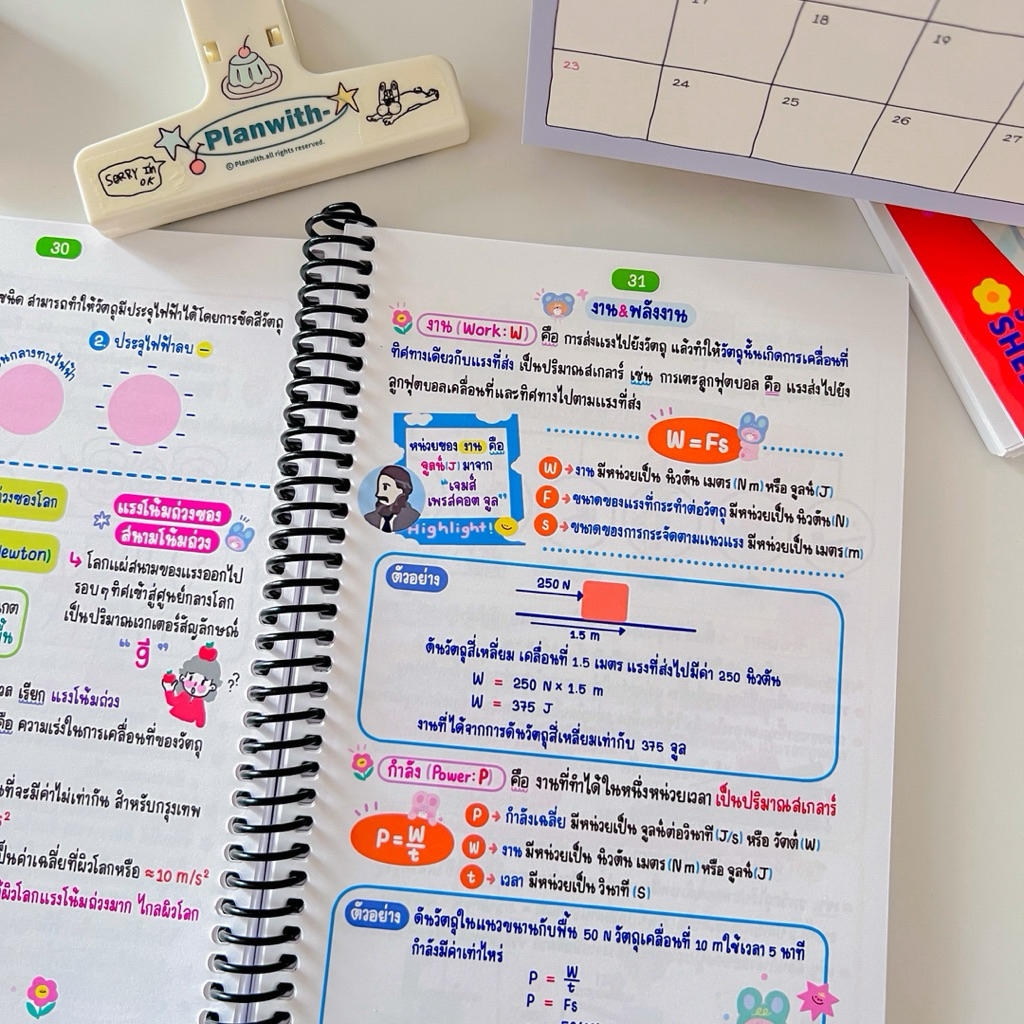 Planwith-
© Planwith.all rights reserved.
SORRY I'm
OK
17
18
19
23
24
25
26
27
30
สามารถทำให้วัตถุมีประจุไฟฟ้าได้โดยการขัดสีวัตถุ
2. ประจุไฟฟ้าลบ -
แรงโน้มถ่วงของ
สนามโน้มถ่วง
↳ โลกแผ่สนามของแรงออกไป
รอบๆทิศเข้าสู่ศูนย์กลางโลก
เป็นปริมาณเวกเตอร์สัญลักษณ์
"g"
??
เรียก แรงโน้มถ่วง
คือ ความเร่งในการเคลื่อนที่ของวัตถุ
จะมีค่าไม่เท่ากัน สำหรับกรุงเทพ
เป็นค่าเฉลี่ยที่ผิวโลกหรือ ≈10 m/s²
ผิวโลกแรงโน้มถ่วงมาก ไกลผิวโลก
31
งาน&พลังงาน
งาน (Work: W) คือ การส่งแรงไปยังวัตถุ แล้วทำให้วัตถุนั้นเกิดการเคลื่อนที่
ทิศทางเดียวกับแรงที่ส่ง เป็นปริมาณสเกลาร์ เช่น การเตะลูกฟุตบอล คือ แรงส่งไปยัง
ลูกฟุตบอลเคลื่อนที่และทิศทางไปตามแรงที่ส่ง
หน่วยของ งาน คือ
จูลน์(J) มาจาก
"เจมส์
เพรสคอต จูล"
Highlight!
W = Fs
W → งาน มีหน่วยเป็น นิวตัน เมตร (N m) หรือ จูลน์ (J)
F → ขนาดของแรงที่กระทำต่อวัตถุ มีหน่วยเป็น นิวตัน (N)
S → ขนาดของการกระจัดตามแนวแรง มีหน่วยเป็น เมตร (m)
ตัวอย่าง
250 N
1.5 m
ดันวัตถุสี่เหลี่ยม เคลื่อนที่ 1.5 เมตร แรงที่ส่งไปมีค่า 250 นิวตัน
W = 250 N × 1.5 m
W = 375 J
งานที่ได้จากการดันวัตถุสี่เหลี่ยมเท่ากับ 375 จูล
กำลัง (Power: P) คือ งานที่ทำได้ในหนึ่งหน่วยเวลา เป็นปริมาณสเกลาร์
P = W/t
P → กำลังเฉลี่ย มีหน่วยเป็น จูลน์ต่อวินาที (J/s) หรือ วัตต์ (W)
W → งาน มีหน่วยเป็น นิวตัน เมตร (N m) หรือ จูลน์ (J)
t → เวลา มีหน่วยเป็น วินาที (S)
ตัวอย่าง ดันวัตถุในแนวขนานกับพื้น 50 N วัตถุเคลื่อนที่ 10 m ใช้เวลา 5 นาที
กำลังมีค่าเท่าไหร่
P = W/t
P = Fs